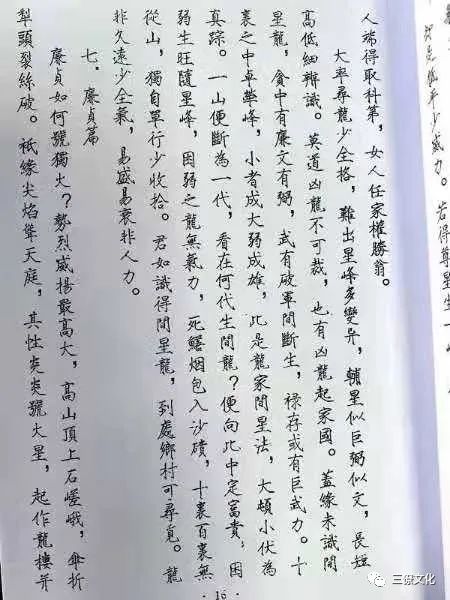 却是低平少威力。若得尊星生一
人端得取科第,女人任家權勝翁。
大率尋龍少全格,難出星峰多變异,輔星似巨弼似文,長短
高低細辨識。莫道凶龍不可裁,也有凶龍起家國。蓋緣未識間
星龍,貪中有廉文有弼,武有破軍間斷生,禄存或有巨武力。十
裏之中卓犖峰,小者成大弱成雄,此是龍家間星法,大頓小伏為
真踪。一山便斷為一代,看在何代生間龍?便向此中定富貴,因
弱生旺隨星峰,困弱之龍無氣力,死鰌烟包入沙磧,十裏百裏無
從山,獨自單行少收拾。君如識得間星龍,到處鄉村可尋覓。龍
非久遠少全氣,易盛易衰非人力。
七.廉貞篇
廉貞如何號獨火?勢烈威揚最高大,高山頂上石嵯峨,傘折
犁頭裂絲破。祗緣尖焰聳天庭,其性炎炎號火星,起作龍樓并
·16·
三僚文化